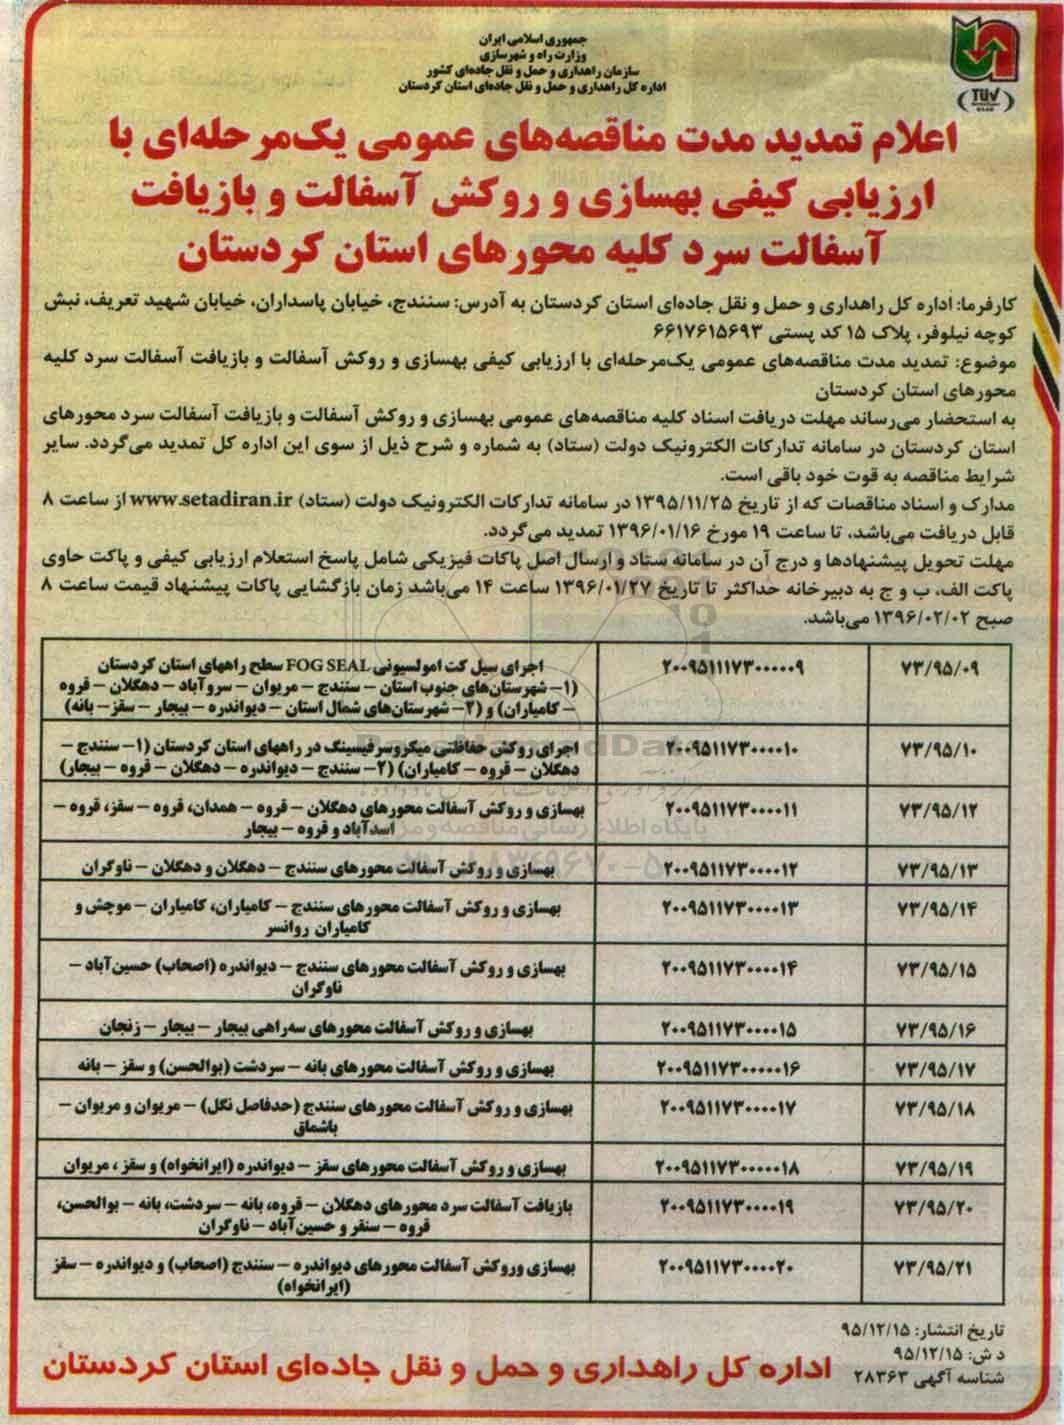 جمهوری اسلامی ایران
وزارت راه و شهرسازی
سازمان راهداری و حمل و نقل جاده‌ای کشور
اداره کل راهداری و حمل و نقل جاده‌ای استان کردستان
TÜV
اعلام تمدید مدت مناقصه‌های عمومی یک‌مرحله‌ای با
ارزیابی کیفی بهسازی و روکش آسفالت و بازیافت
آسفالت سرد کلیه محورهای استان کردستان
کارفرما: اداره کل راهداری و حمل و نقل جاده‌ای استان کردستان به آدرس: سنندج، خیابان پاسداران، خیابان شهید تعریف، نبش
کوچه نیلوفر، پلاک ۱۵ کد پستی ۶۶۱۷۶۱۵۶۹۳
موضوع: تمدید مدت مناقصه‌های عمومی یک‌مرحله‌ای با ارزیابی کیفی بهسازی و روکش آسفالت و بازیافت آسفالت سرد کلیه
محورهای استان کردستان
به استحضار می‌رساند مهلت دریافت اسناد کلیه مناقصه‌های عمومی بهسازی و روکش آسفالت و بازیافت آسفالت سرد محورهای
استان کردستان در سامانه تدارکات الکترونیک دولت (ستاد) به شماره و شرح ذیل از سوی این اداره کل تمدید می‌گردد. سایر
شرایط مناقصه به قوت خود باقی است.
مدارک و اسناد مناقصات که از تاریخ ۱۳۹۵/۱۱/۲۵ در سامانه تدارکات الکترونیک دولت (ستاد) www.setadiran.ir از ساعت ۸
قابل دریافت می‌باشد، تا ساعت ۱۹ مورخ ۱۳۹۶/۰۱/۱۶ تمدید می‌گردد.
مهلت تحویل پیشنهادها و درج آن در سامانه ستاد و ارسال اصل پاکات فیزیکی شامل پاسخ استعلام ارزیابی کیفی و پاکت حاوی
پاکت الف، ب و ج به دبیرخانه حداکثر تا تاریخ ۱۳۹۶/۰۱/۲۷ ساعت ۱۴ می‌باشد زمان بازگشایی پاکات پیشنهاد قیمت ساعت ۸
صبح ۱۳۹۶/۰۲/۰۲ می‌باشد.
۷۳/۹۵/۰۹ ۲۰۰۹۵۱۱۱۷۳۰۰۰۰۰۹ اجرای سیل کت امولسیونی FOG SEAL سطح راههای استان کردستان
(۱- شهرستان‌های جنوب استان – سنندج – مریوان – سروآباد – دهگلان – قروه
– کامیاران) و (۲- شهرستان‌های شمال استان – دیواندره – بیجار – سقز- بانه)
۷۳/۹۵/۱۰ ۲۰۰۹۵۱۱۷۳۰۰۰۰۱۰ اجرای روکش حفاظتی میکروسرفیسینگ در راههای استان کردستان (۱- سنندج –
دهگلان – قروه – کامیاران) (۲- سنندج – دیواندره – دهگلان – قروه – بیجار)
۷۳/۹۵/۱۲ ۲۰۰۹۵۱۱۷۳۰۰۰۰۱۱ بهسازی و روکش آسفالت محورهای دهگلان – قروه – همدان، قروه – سقز، قروه –
اسدآباد و قروه – بیجار
۷۳/۹۵/۱۳ ۲۰۰۹۵۱۱۷۳۰۰۰۰۱۲ بهسازی و روکش آسفالت محورهای سنندج – دهگلان و دهگلان – ناوگران
۷۳/۹۵/۱۴ ۲۰۰۹۵۱۱۷۳۰۰۰۰۱۳ بهسازی و روکش آسفالت محورهای سنندج – کامیاران، کامیاران – موچش و
کامیاران روانسر
۷۳/۹۵/۱۵ ۲۰۰۹۵۱۱۷۳۰۰۰۰۱۴ بهسازی و روکش آسفالت محورهای سنندج – دیواندره (اصحاب) حسین‌آباد –
ناوگران
۷۳/۹۵/۱۶ ۲۰۰۹۵۱۱۷۳۰۰۰۰۱۵ بهسازی و روکش آسفالت محورهای سه‌راهی بیجار – بیجار – زنجان
۷۳/۹۵/۱۷ ۲۰۰۹۵۱۱۷۳۰۰۰۰۰۱۶ بهسازی و روکش آسفالت محورهای بانه – سردشت (بوالحسن) و سقز – بانه
۷۳/۹۵/۱۸ ۲۰۰۹۵۱۱۷۳۰۰۰۰۱۷ بهسازی و روکش آسفالت محورهای سنندج (حدفاصل نگل) – مریوان و مریوان –
باشماق
۷۳/۹۵/۱۹ ۲۰۰۹۵۱۱۷۳۰۰۰۰۰۱۸ بهسازی و روکش آسفالت محورهای سقز – دیواندره (ایرانخواه) و سقز ، مریوان
۷۳/۹۵/۲۰ ۲۰۰۹۵۱۱۷۳۰۰۰۰۱۹ بازیافت آسفالت سرد محورهای دهگلان – قروه، بانه – سردشت، بانه – بوالحسن،
قروه – سنقر و حسین‌آباد – ناوگران
۷۳/۹۵/۲۱ ۲۰۰۹۵۱۱۷۳۰۰۰۰۲۰ بهسازی وروکش آسفالت محورهای دیواندره – سنندج (اصحاب) و دیواندره – سقز
(ایرانخواه)
تاریخ انتشار: ۹۵/۱۲/۱۵
د ش: ۹۵/۱۲/۱۵
شناسه آگهی ۲۸۳۶۳
اداره کل راهداری و حمل و نقل جاده‌ای استان کردستان